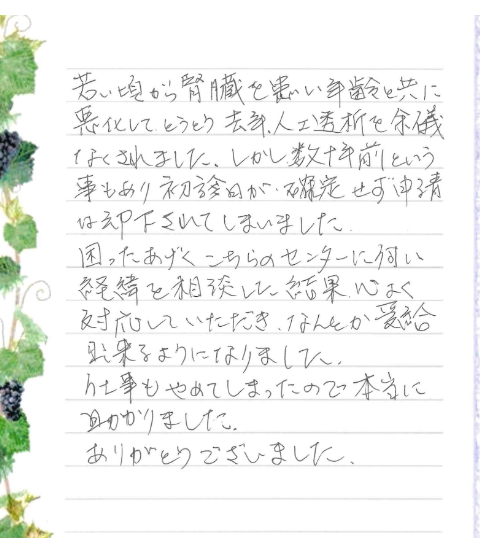 若い頃から腎臓を患い年齢と共に
悪化してとうとう去年、人工透析を余儀
なくされました、しかし数十年前という
事もあり初診日が、確定せず申請
は却下されてしまいました
困ったあげくこちらのセンターに伺い
経緯を相談した結果、心よく
対応していただき、なんとか受給
出来るようになりました、
仕事もやめてしまったので本当に
助かりました。
ありがとうございました、